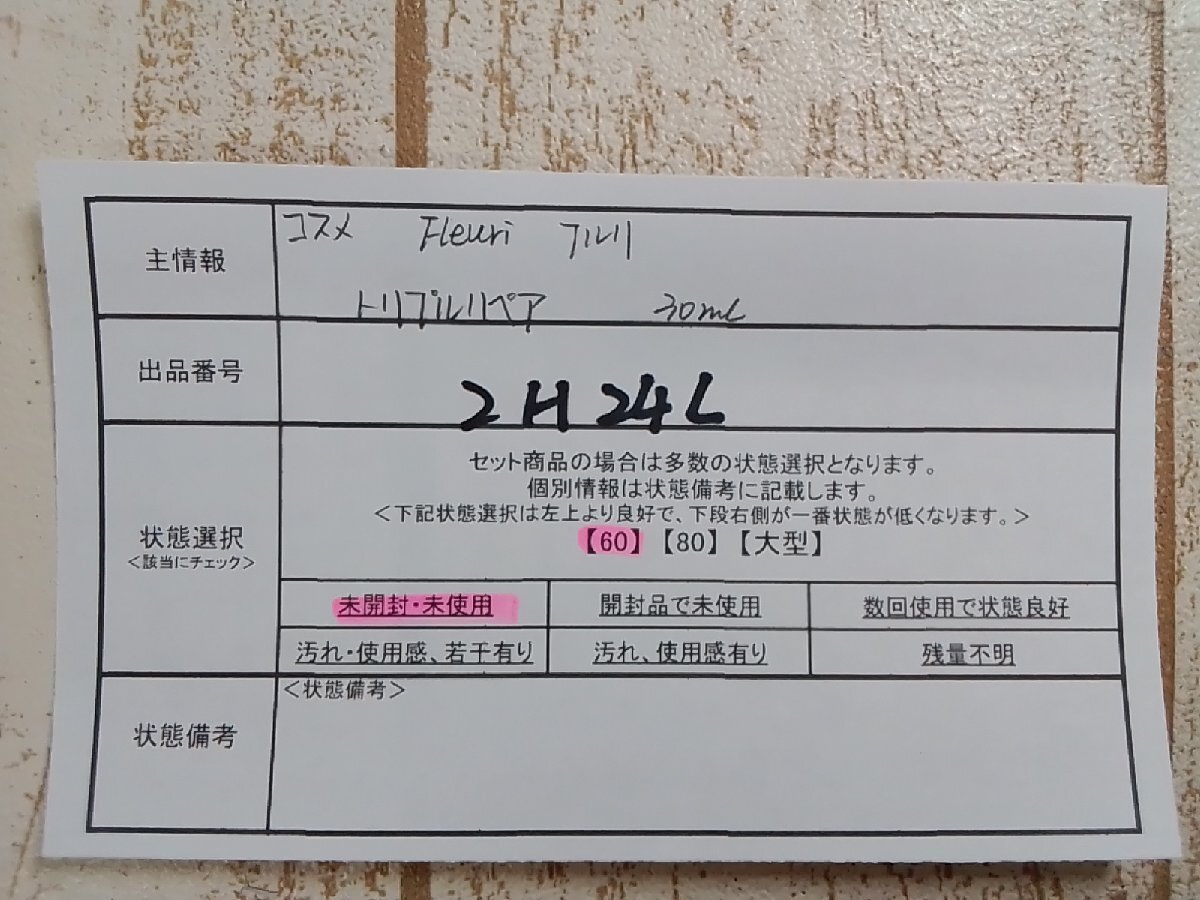 主情報
コスメ Fleuri フルリ
トリプルリペア 30ml
出品番号
2H24L
状態選択
<該当にチェック>
セット商品の場合は多数の状態選択となります。
個別情報は状態備考に記載します。
<下記状態選択は左上より良好で、下段右側が一番状態が低くなります。>
【60】【80】【大型】
未開封・未使用 開封品で未使用 数回使用で状態良好
汚れ・使用感、若干有り 汚れ、使用感有り 残量不明
状態備考
<状態備考>